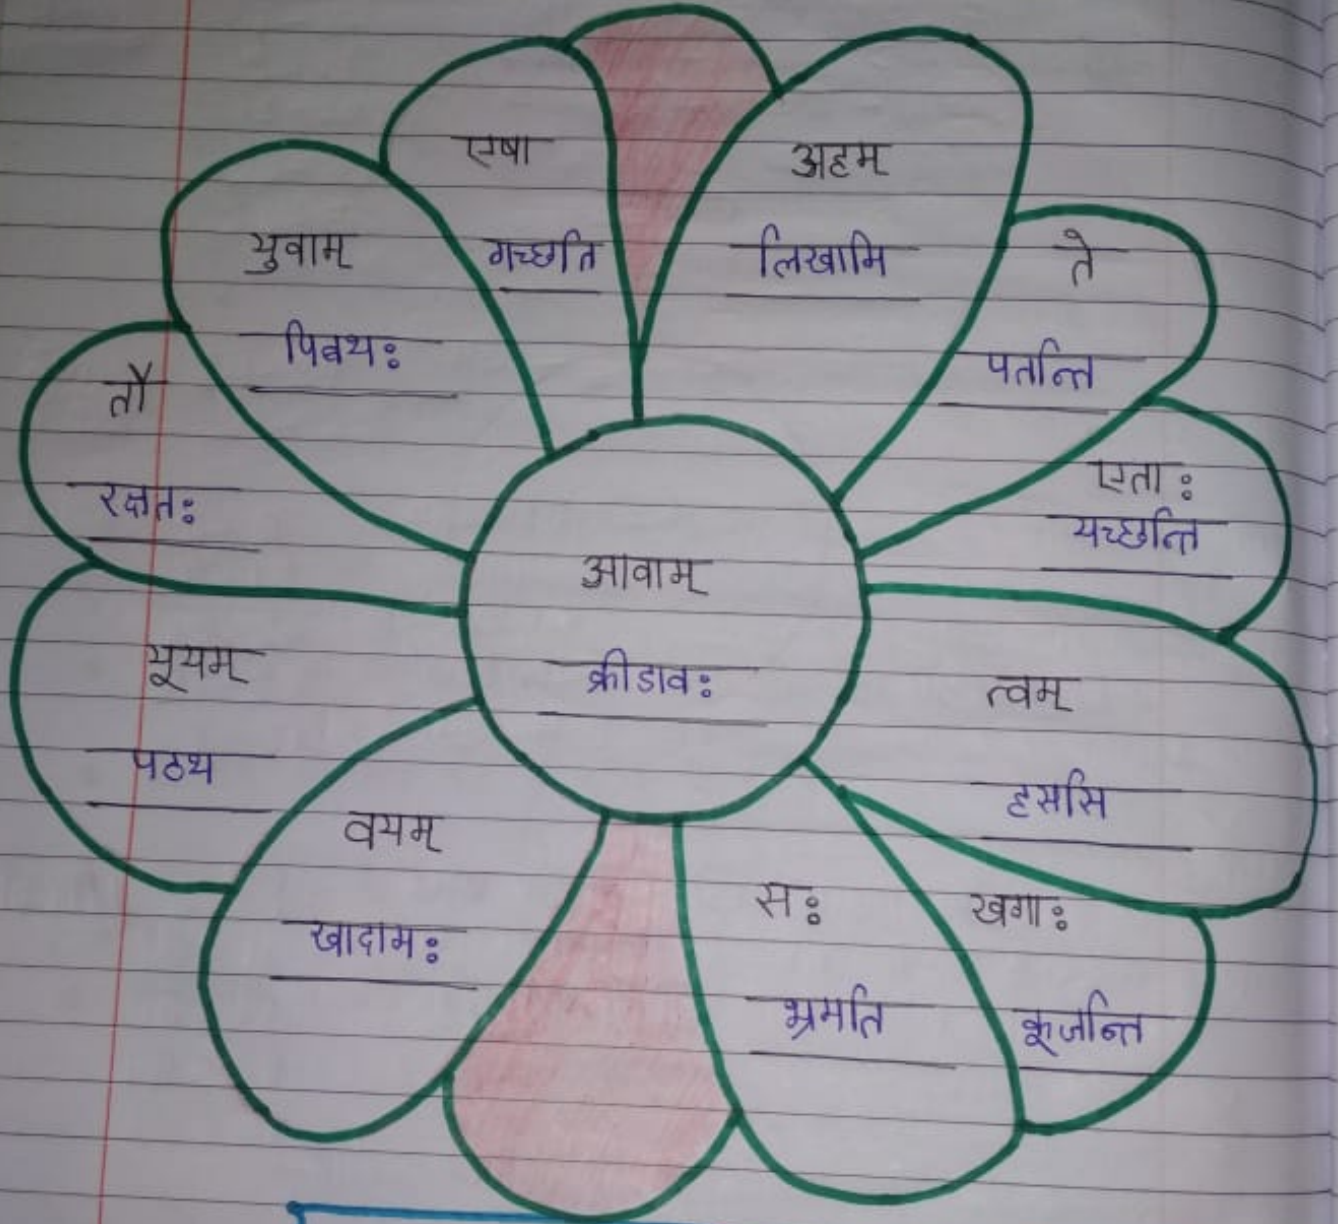 एषा
गच्छति
अहम्
लिखामि
ते
पतन्ति
एताः
यच्छन्ति
त्वम्
हससि
खगाः
कूजन्ति
सः
भ्रमति
वयम्
खादामः
यूयम्
पठथ
तौ
रक्षतः
युवाम्
पिबथः
आवाम्
क्रीडावः